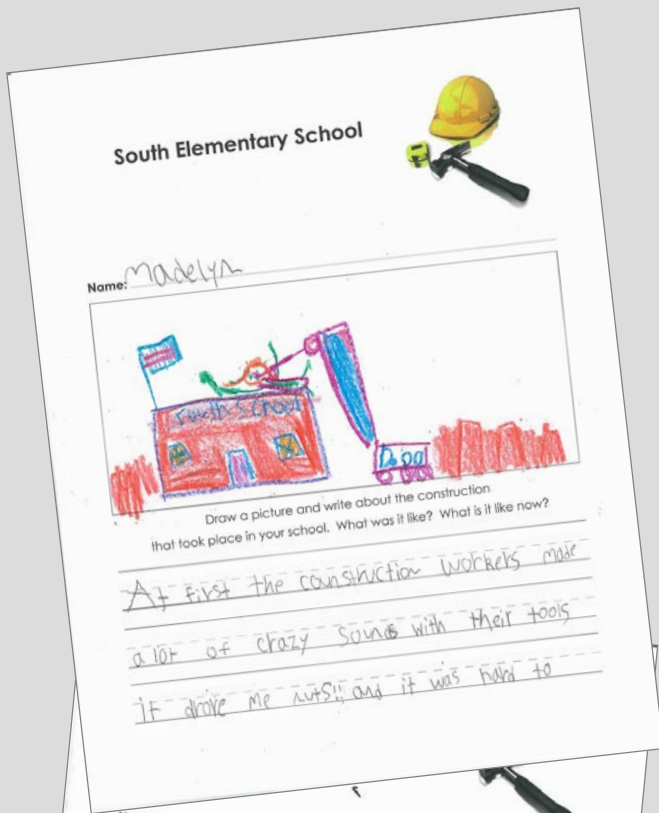 South Elementary School
Name: Madelyn
South School
Draw a picture and write about the construction
that took place in your school. What was it like? What is it like now?
At first the counstruction workers made
a lot of crazy sounds with their tools
it drove me nuts!! and it was hard to